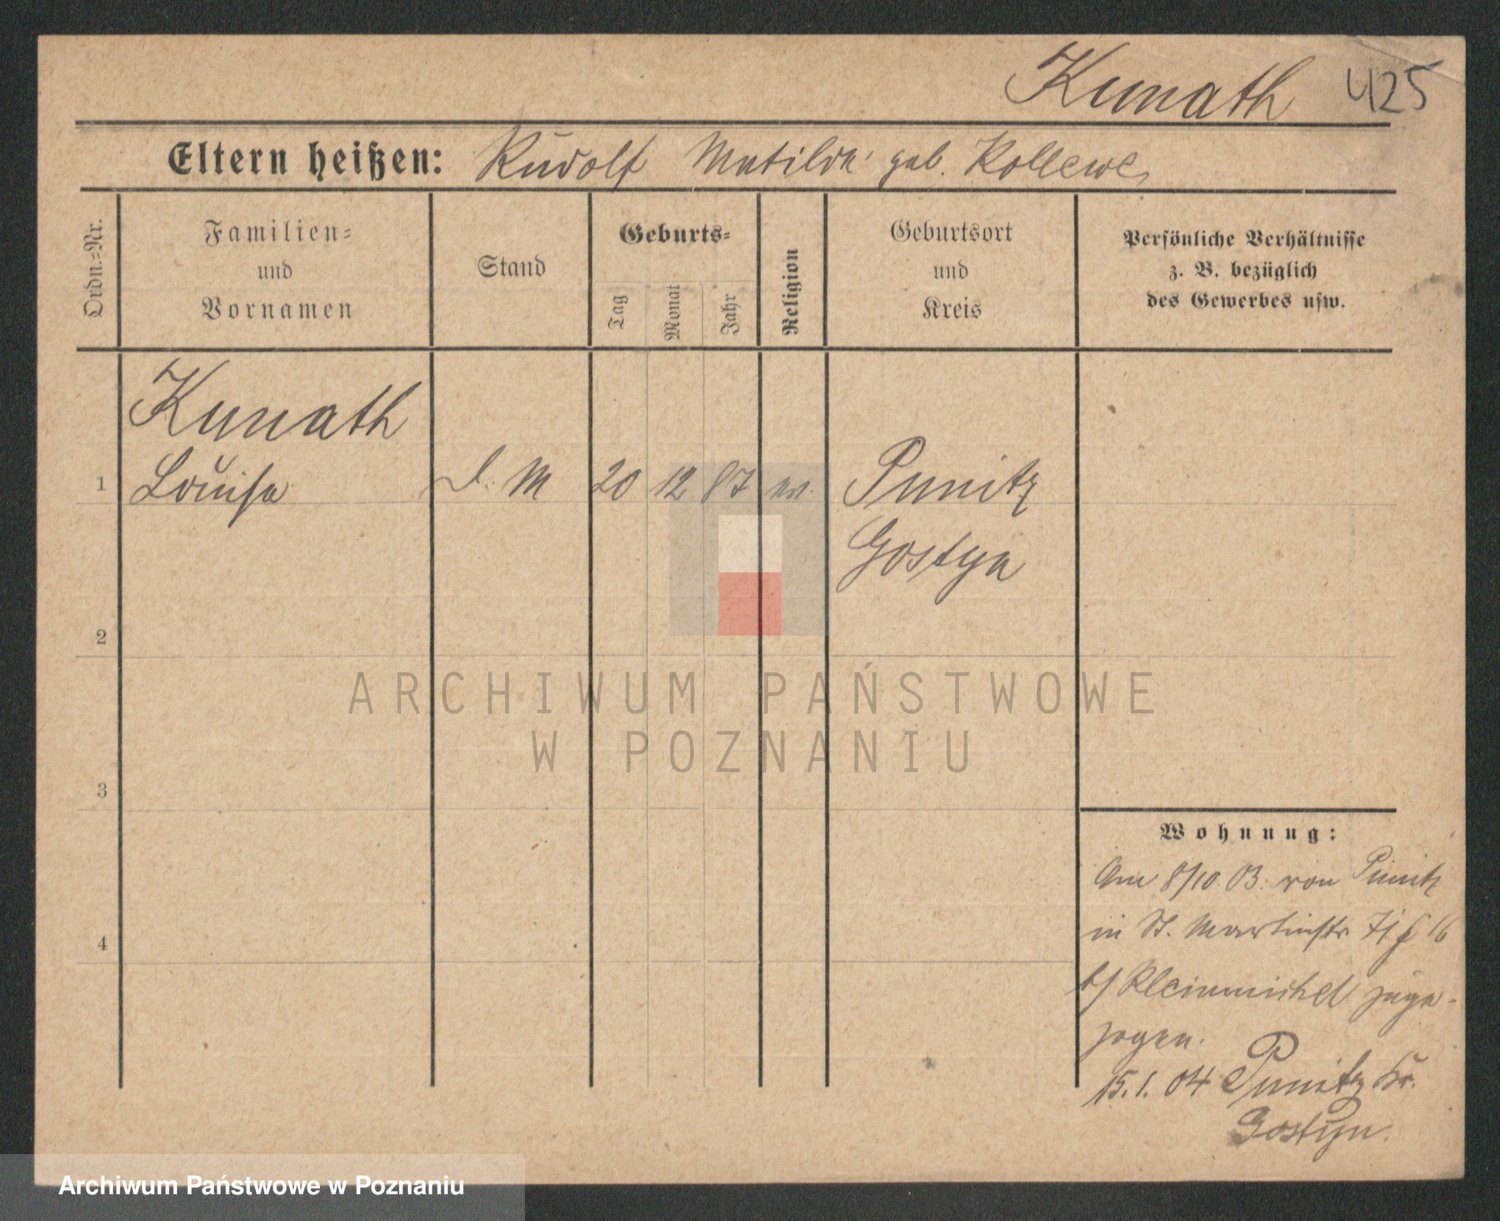 Kunath 425
Eltern heißen: Rudolf Matilde geb. Kollewe
Ordn.-Nr.
Familien-
und
Vornamen
Stand
Geburts-
Tag
Monat
Jahr
Religion
Geburtsort
und
Kreis
Persönliche Verhältnisse
z. B. bezüglich
des Gewerbes usw.
Kunath
1 Louise d. M 20 12 87 ev. Punitz
Gostyn
2
3
4
Wohnung:
Am 8/10. 03. von Punitz
in St. Martinstr 71 16
b/ Kleinmichel zuge-
zogen.
15.1. 04 Punitz Kr.
Gostyn.
ARCHIWUM PAŃSTWOWE
W POZNANIU
Archiwum Państwowe w Poznaniu